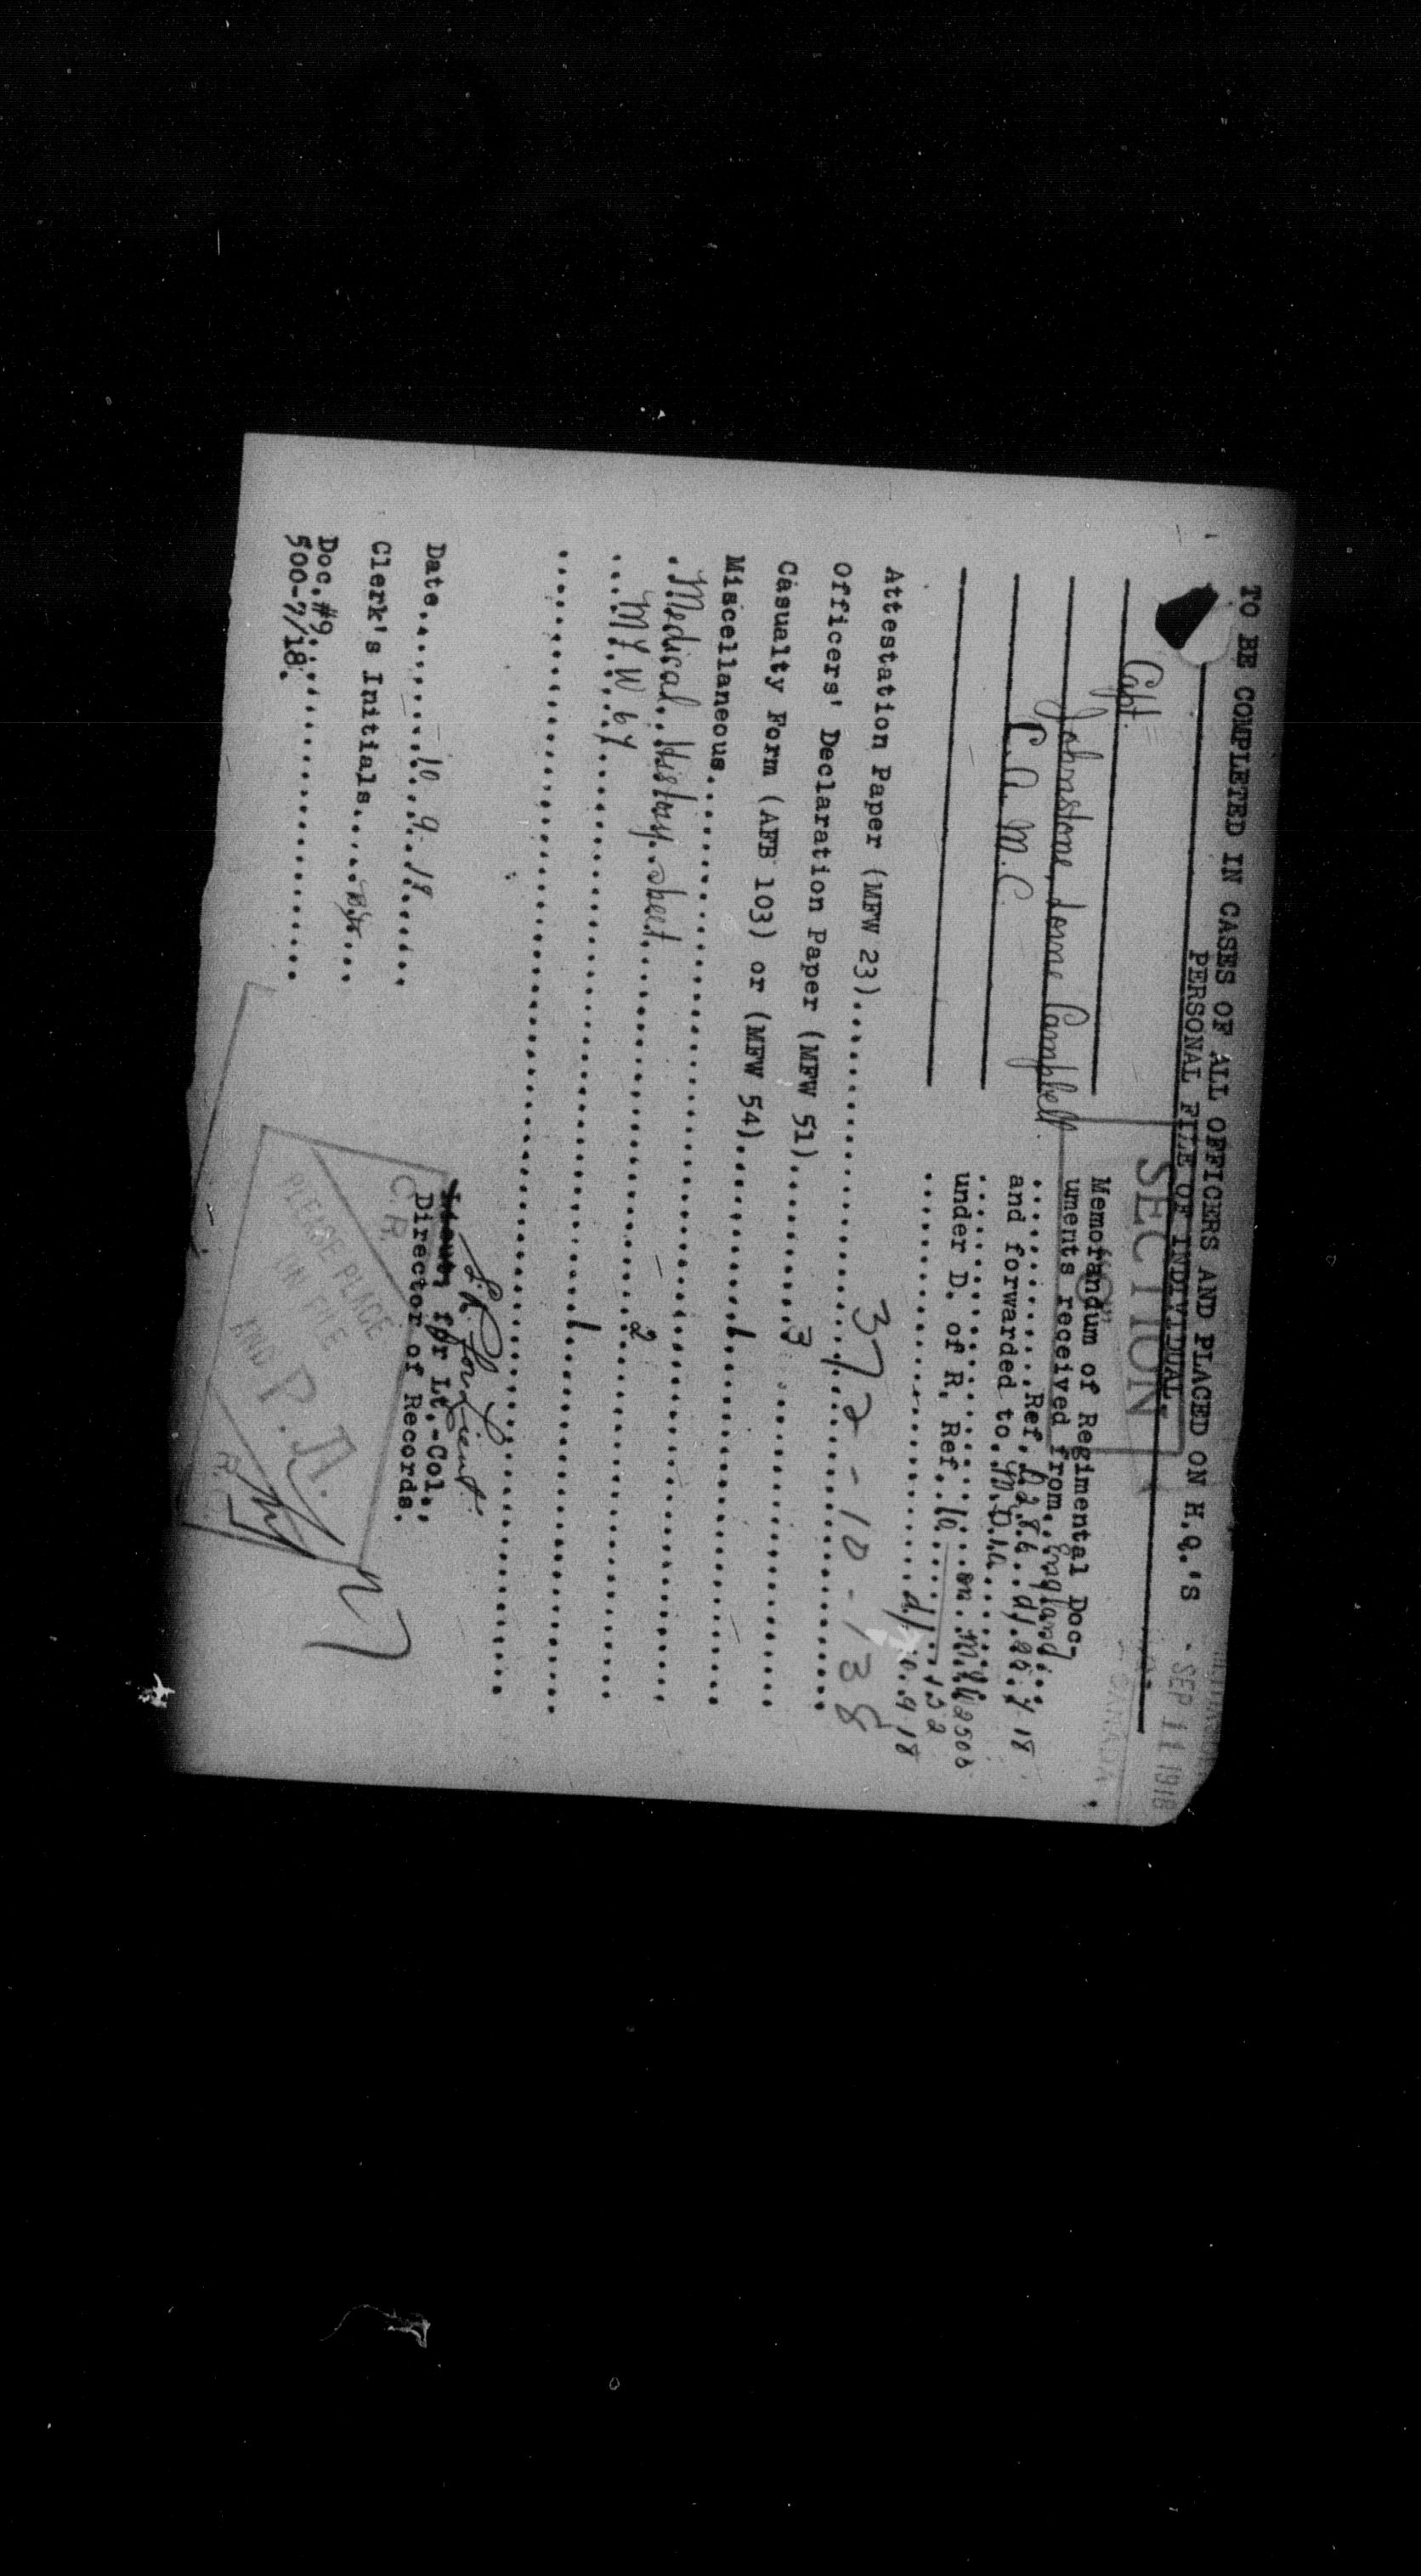 TO BE COMPLETED IN CASES OF ALL OFFICERS AND PLACED ON H.Q.'S
PERSONAL FILE OF INDIVIDUAL.
SEP 11 1918
CANADA
SECTION
Capt.
Johnstone, Lorne Campbell
C.A.M.C.
Memorandum of Regimental Doc-
uments received from..England...
.........Ref.
and forwarded to.
under D. of R. Ref..10
Attestation Paper (MFW 23)
372-10-138
Officers' Declaration Paper (MFW 51)..........3
Casualty Form (AFB 103) or (MFW 54)..........1
Miscellaneous
Medical History Sheet..........2
MFW 67..........1
Lieut.
Lieut, for Lt.-Col.,
Director of Records.
Date..........10.9.18
Clerk's Initials
Doc.#9.
500-7/18.
C.R.
PLEASE PLACE
ON FILE
AND P.A.